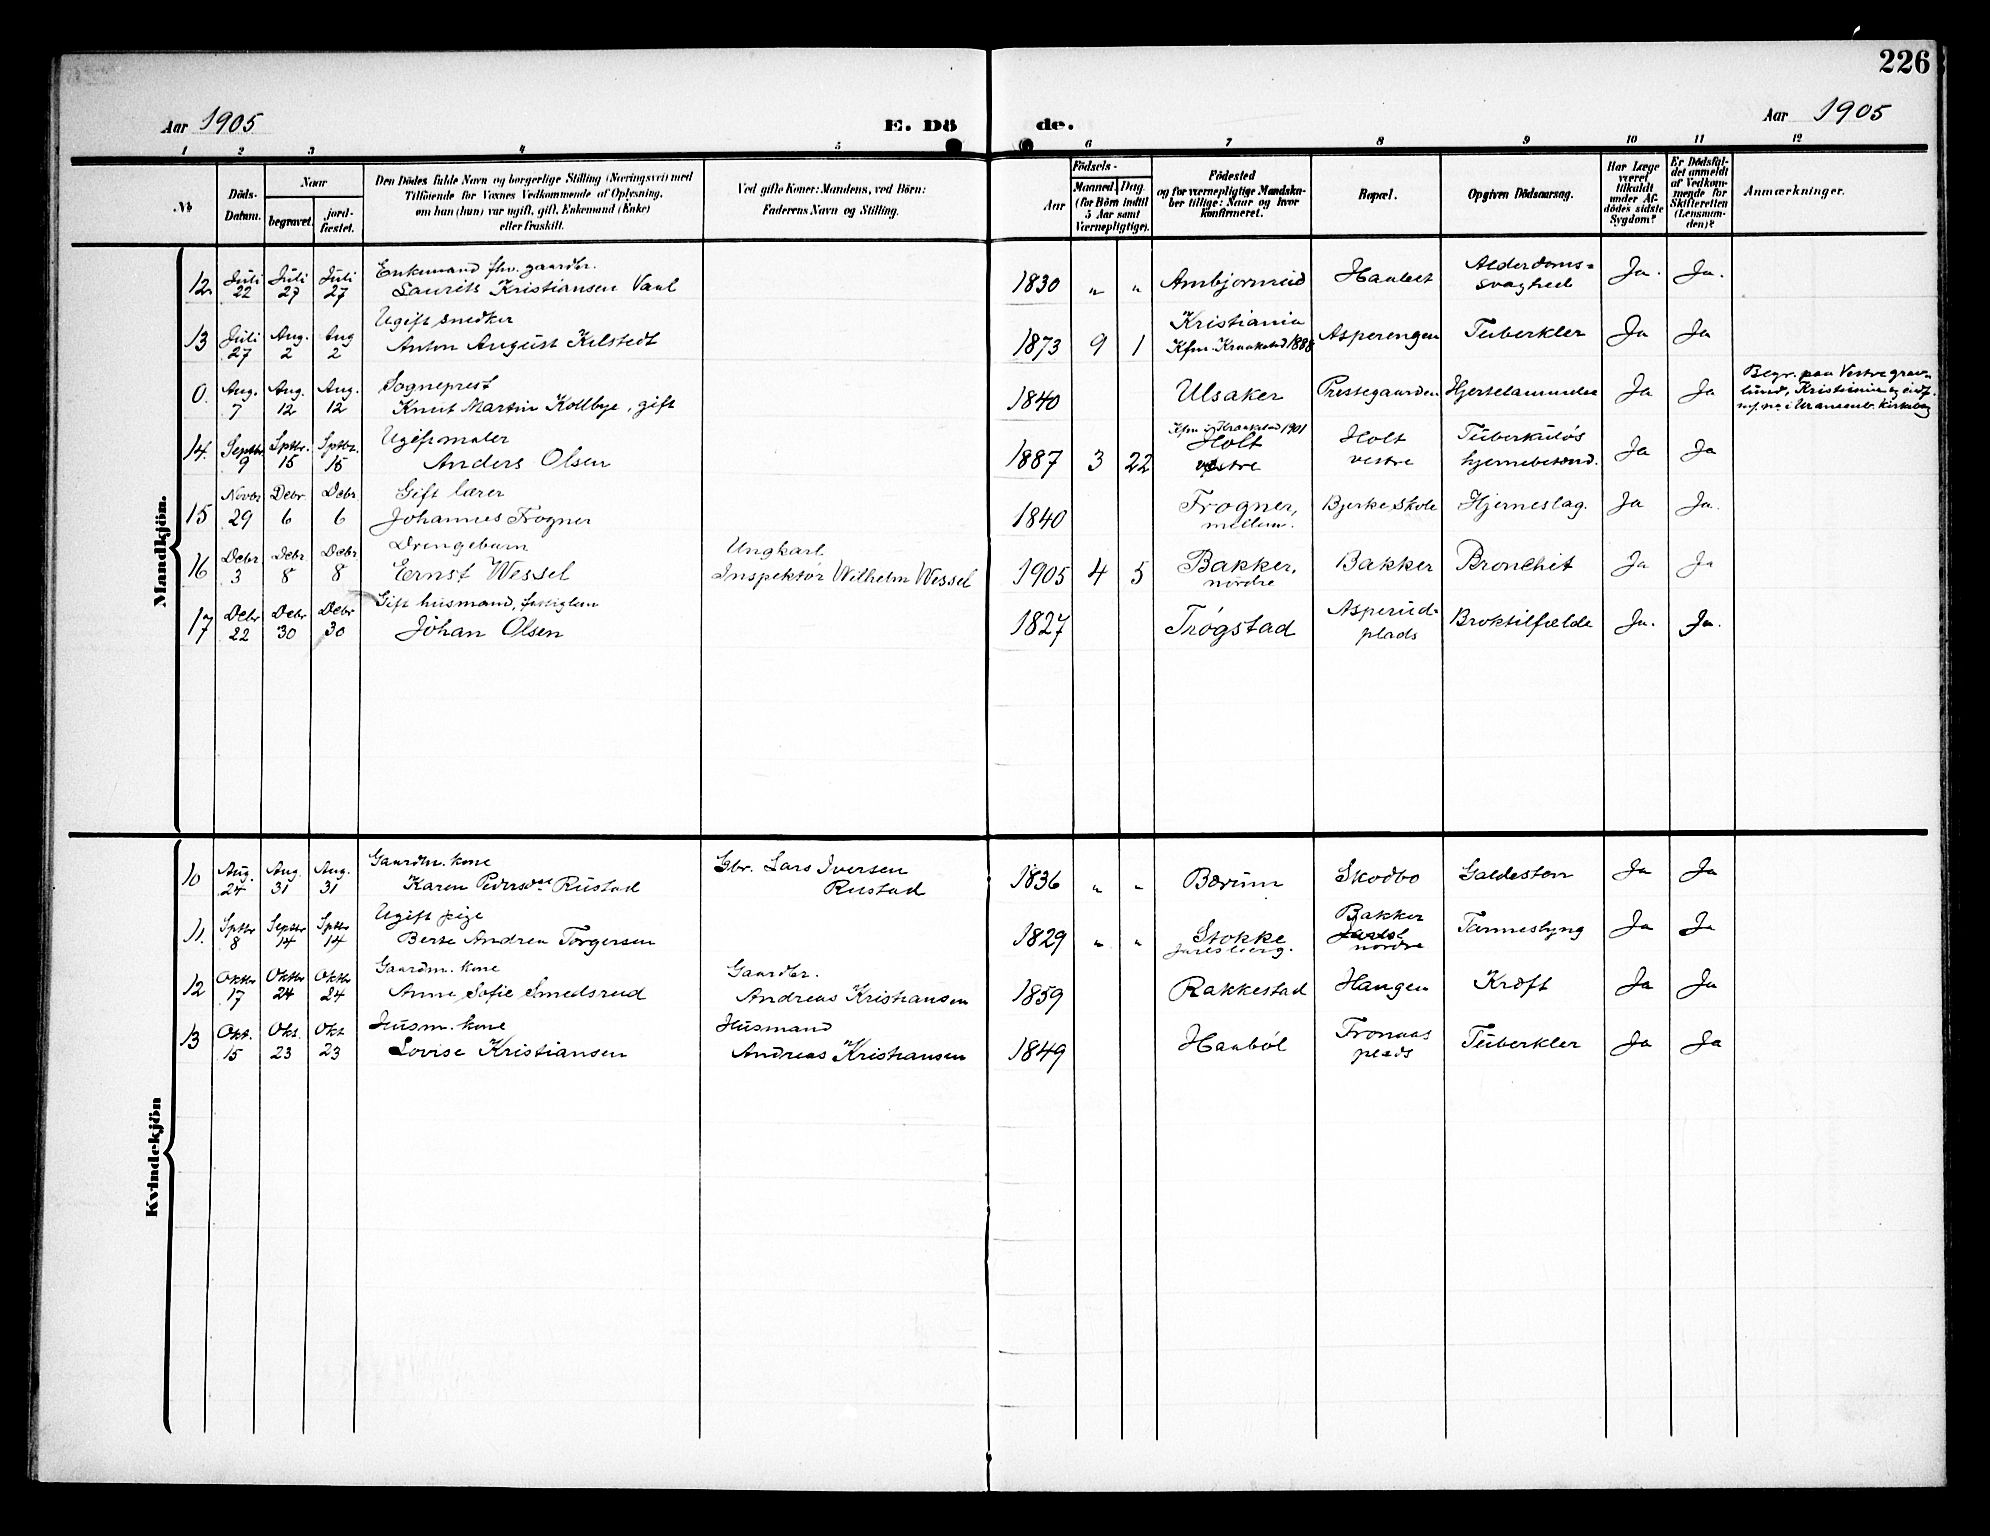 226
Aar 1905
E. Dö
de.
Aar 1905
1 2 3 4 5 6 7 8 9 10 11 12
№
Döds-
Datum.
Naar
begravet.
jord-
fæstet.
Den Dödes fulde Navn og borgerlige Stilling (Næringsvei) med
Tilföiende for Voxnes Vedkommende af Oplysning,
om han (hun) var ugift, gift, Enkemand (Enke)
eller fraskilt.
Ved gifte Koner: Mandens, ved Börn:
Faderens Navn og Stilling.
Födsels-
Aar
Maaned. Dag.
(for Börn indtil
5 Aar samt
Værnepligtige).
Födested
og for værnepligtige Mandska-
ber tillige: Naar og hvor
konfirmeret.
Bopæl.
Opgiven Dödsaarsag.
Har Læge
været
tilkaldt
under Af-
dödes sidste
Sygdom?
Er Dödsfal-
det anmeldt
af Vedkom-
mende for
Skifteretten
(Lensman-
den)?
Anmærkninger.
Mandkjön.
12. Juli 22 Juli 27 Juli 27 Enkemand fhv. gaardbr.
Laurits Kristiansen Vaal 1830 " " Ambjørnrud Haabet Alderdoms=
svaghed Ja. Ja.
13 Juli 27 Aug. 2 Aug 2 Ugift snedker
Anton August Kilstedt 1873 9 1 Kristiania
Kfm. Kraakstad 1888 Asperengen Tuberkler Ja Ja
0. Aug. 7 Aug. 12 Aug. 12 Sogneprest
Knut Martin Kolbye, gift 1840 Ulsaker Prestegaarden Hjertelammelse Ja Ja Begr. paa Vestre grav-
lund, Kristiania og
14. Septbr 9 Sptbr. 15 Sptbr. 15 Ugift maler
Anders Olsen 1887 3 22 Kfm i Kraakstad 1901
Holt
vestre Holt
vestre Tuberkuløs
hjernebetænd. Ja Ja
15 Novbr 29 Debr. 6 Debr 6 Gift lærer
Johannes Frogner 1840 Frogner,
mellem. Bjerke skole Hjerneslag. Ja Ja.
16 Debr 3 Debr 8 Debr 8 Drengebarn
Ernst Wessel Ungkarl.
Inspektør Wilhelm Wessel 1905 4 5 Bakker,
nordre Bakker Bronchit Ja Ja
17 Debr 22 Debr 30 Debr 30 Gift husmand, fattiglem
Johan Olsen 1827 Trøgstad Asperud-
plads Broktilfælde Ja. Ja.
Kvindekjön
10 Aug. 24 Aug. 31 Aug. 31 Gaardm. kone
Karen Pedersdt Rustad Gbr. Lars Iversen
Rustad 1836 " " Bærum Skodbo Galdesten Ja Ja
11. Sptbr 8 Septbr 14 Sptbr 14 Ugift pige
Berte Andrea Torgersen 1829 " " Stokke
Jarlsberg. Bakker
nordre Tarmeslyng Ja Ja
12 Oktbr 17 Oktbr 24 Oktbr 24 Gaardm. kone
Anne Sofie Smedsrud Gaardbr.
Andreas Kristiansen 1859 Rakkestad Haugen Kræft Ja Ja
13 Okt. 15 Okt. 23 Okt 23 Husm. kone
Lovise Kristiansen Husmand
Andreas Kristiansen 1849 Haabøl Fronaas
plads Tuberkler Ja Ja